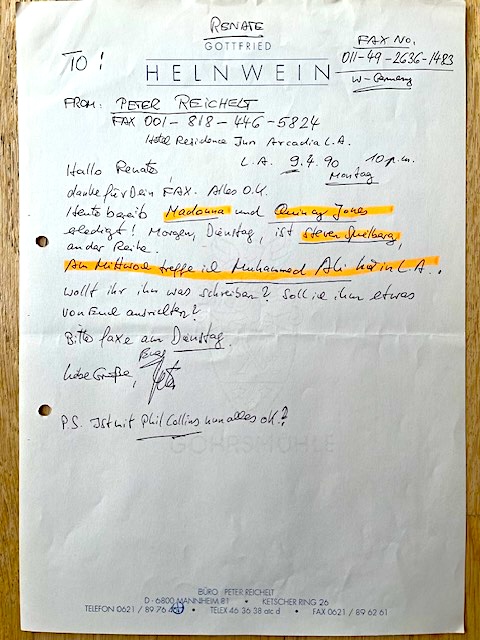 RENATE
GOTTFRIED
TO:
HELNWEIN
FAX No.
011-49-2636-1483
W-Germany
FROM: PETER REICHELT
FAX 001-818-446-5824
Hotel Residence Inn Arcadia L.A.
L.A. 9.4.90 10 p.m.
Montag
Hallo Renate,
danke für Dein FAX. Alles O.K.
Heute bereits Madonna und Quincy Jones
erledigt! Morgen, Dienstag, ist Steven Spielberg,
an der Reihe.
Am Mittwoch treffe ich Muhammed Ali hier in L.A..
Wollt ihr ihm was schreiben? Soll ich ihm etwas
von Euch ausrichten?
Bitte faxe am Dienstag.
Liebe Grüße, Euer Peter
P.S. Ist mit Phil Collins nun alles ok.?
GOHRSMÜHLE
BÜRO PETER REICHELT
D - 6800 MANNHEIM 81 • KETSCHER RING 26
TELEFON 0621 / 89 76 • TELEX 46 36 38 atc d • FAX 0621 / 89 62 61